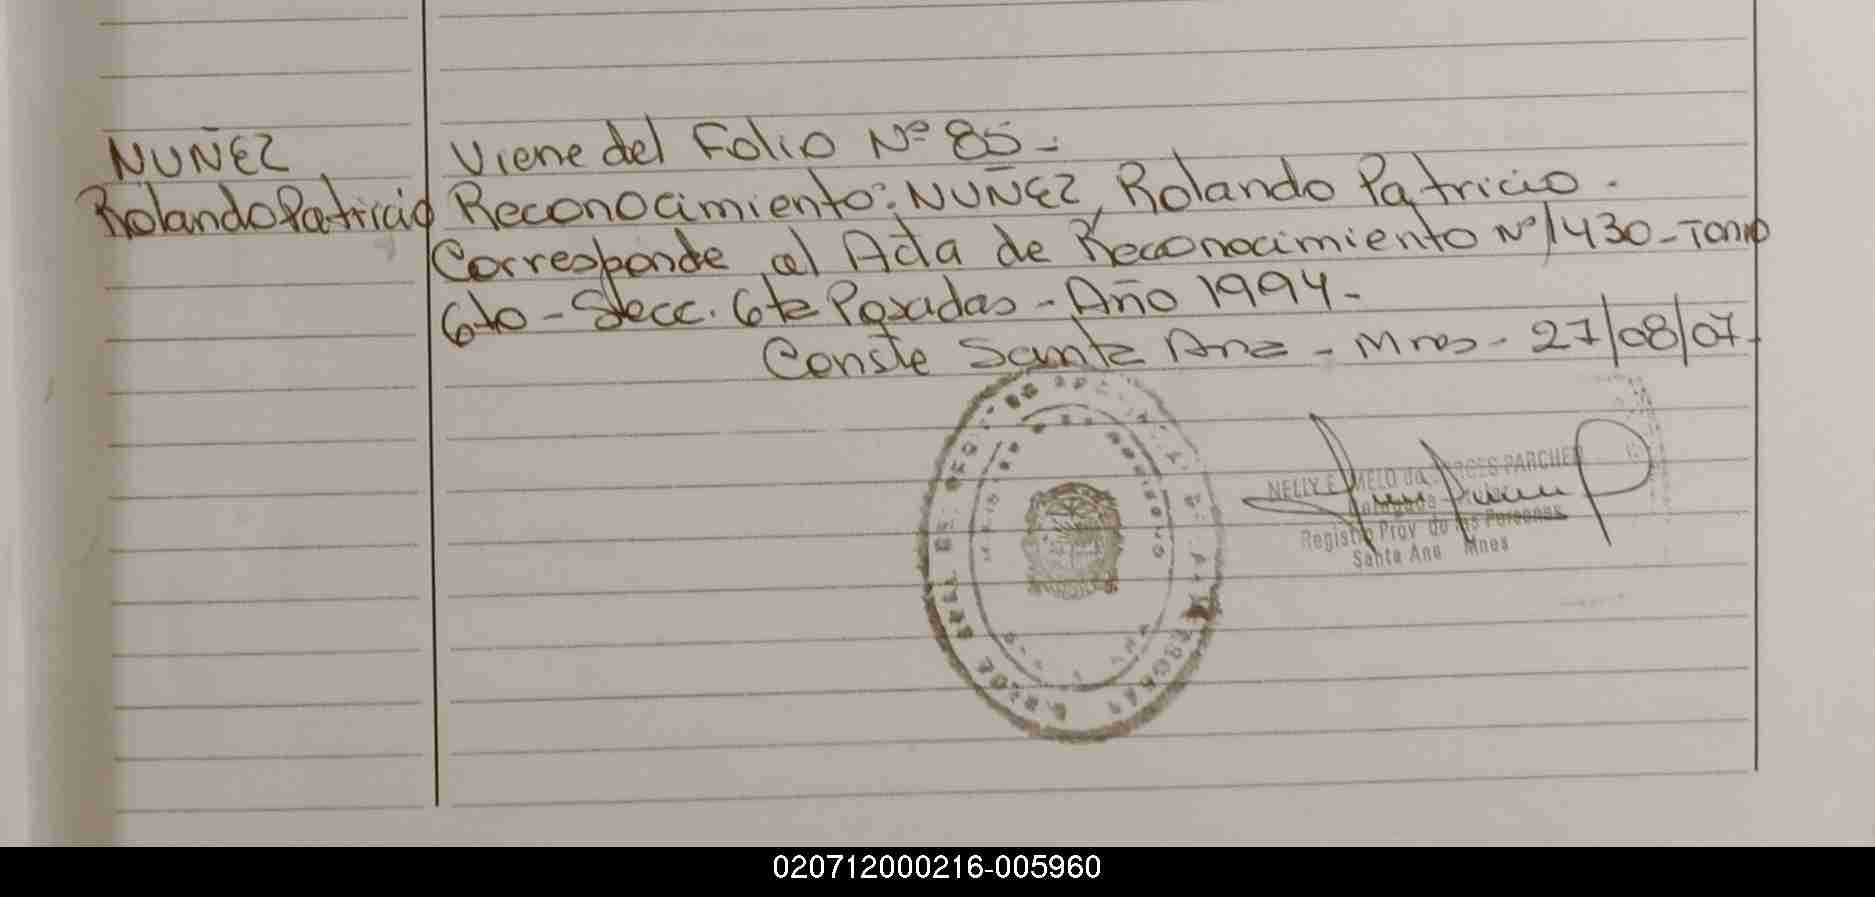 NUÑEZ
Rolando Patricio
Viene del Folio Nº 85.-
Reconocimiento: NUÑEZ, Rolando Patricio.
Corresponde al Acta de Reconocimiento Nº 1430 - Tomo
6to - Secc. 6ta Posadas - Año 1994 -
Conste Santa Ana - Mnes - 27/08/07.
NELLY E. MELO de PARCHER
Registro Prov de las Personas
Santa Ana Mnes
020712000216-005960